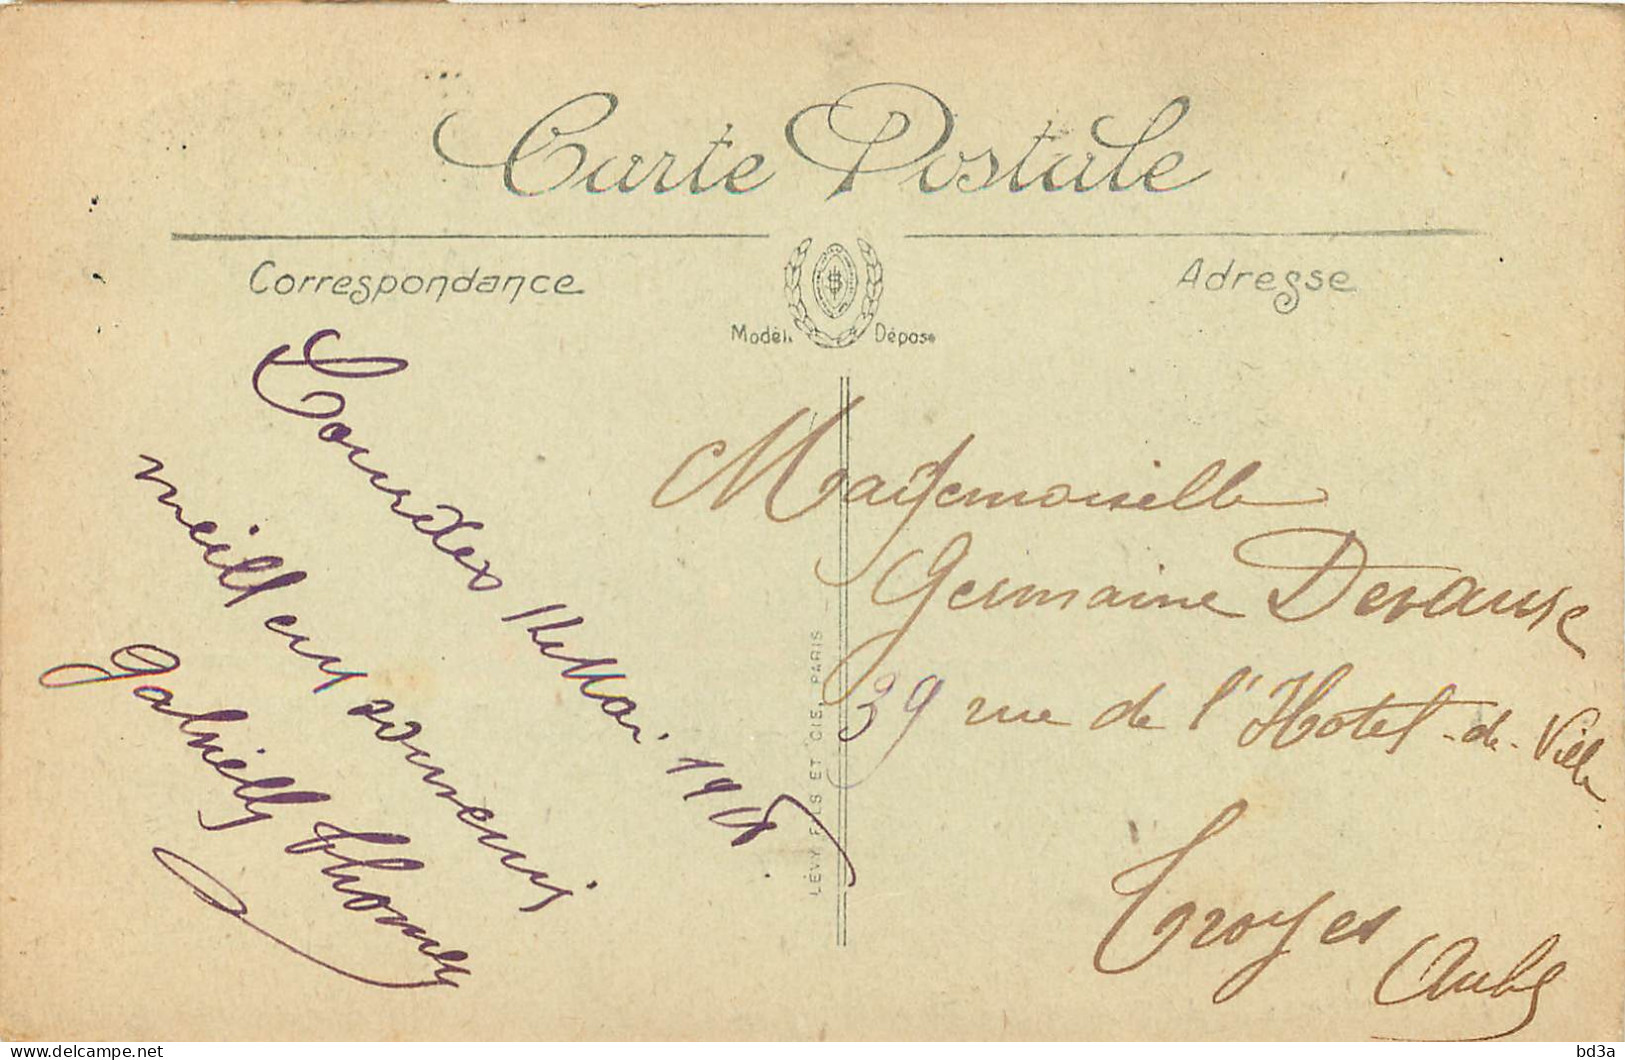 Carte Postale
Correspondance
Adresse
Modèle Déposé
Lourdes Mai
meilleurs souvenirs
Gabrielle Thomas
Mademoiselle
Germaine
39 rue de l'Hotel-de-Ville
Troyes
Aube
LÉVY FILS ET CIE, PARIS
delcampe.net
bd3a